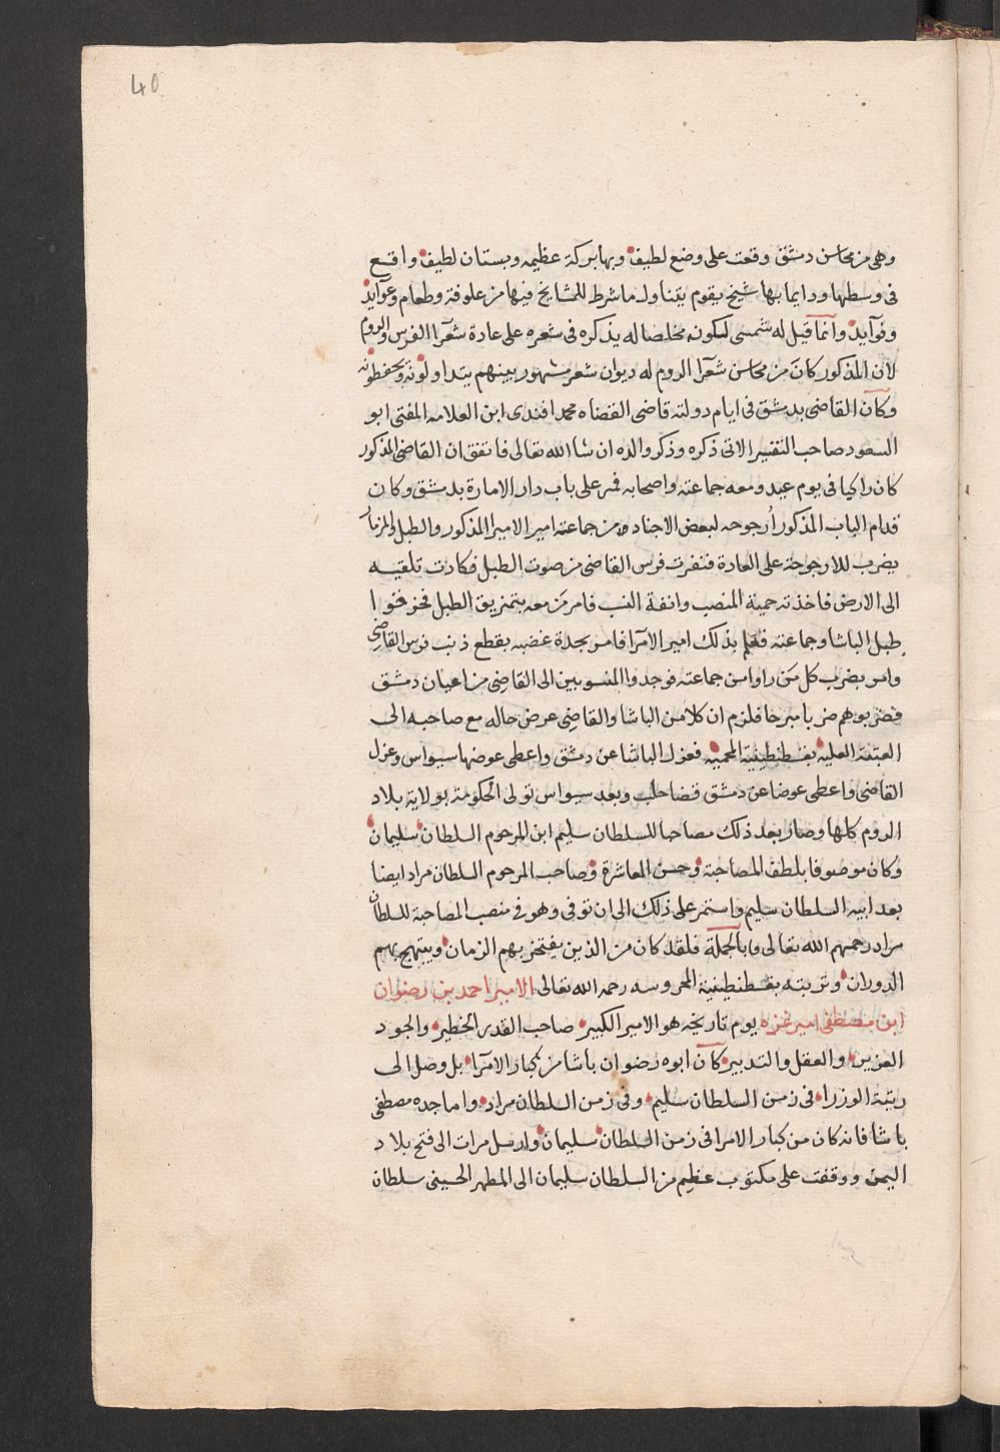 40
وهى من محاسن دمشق وقعت على وضع لطيف وبها بركة عظيمه وبستان لطيف واقع
فى وسطها ودايما بها شيخ يقوم بتناول ما شرط للمشايخ فيها من علوفة وطعام وعوايد
وفوآيد وانما قيل له شمسى لكونه مخلصا له يذكره فى شعره على عادة شعرآ الفرس والروم
لان المذكور كان من محاسن شعرآ الروم له ديوان شعر مشهور بينهم يتداولونه ويحفظونه
وكان القاضى بدمشق فى ايام دولته قاضى القضاه محمد افندى ابن العلامه المفتى ابو
السعود صاحب التفسير الاتى ذكره وذكر والده ان شا الله تعالى فاتفق ان القاضى المذكور
كان راكبا فى يوم عيد ومعه جماعته واصحابه فمر على باب دار الامارة بدمشق وكان
قدام الباب المذكور أرجوحه لبعض الاجناد من جماعته امير الامرا المذكور والطبل والمزمار
يضرب للارجوحة على العادة فنفرت فرس القاضى من صوت الطبل فكادت تلقيه
الى الارض فاخذته حمية المنصب وانفة النسب فامر من معه بتمزيق الطبل فخزقوا
طبل الباشا وجماعته فعلم بذلك امير الامرآ فامر بحدة غضبه بقطع ذنب فرس القاضى
وامر بضرب كل من راوا من جماعته فوجدوا المنسوبين الى القاضى من اعيان دمشق
فضربوهم ضربا مبرحا فلزم ان كلا من الباشا والقاضى عرض حاله مع صاحبه الى
العتبة العليه بقسطنطينية المحميه فعزل الباشا عن دمشق واعطى عوضها سيواس وعزل
القاضى واعطى عوضا عن دمشق قضا حلب وبعد سيواس تولى الحكومة بولاية بلاد
الروم كلها وصار بعد ذلك مصاحبا للسلطان سليم ابن المرحوم السلطان سليمان
وكان موصوفا بلطف المصاحبة وحسن المعاشرة وصاحب المرحوم السلطان مراد ايضا
بعد ابيه السلطان سليم واستمر على ذلك الى ان توفى وهو فى منصب المصاحبة للسلطان
مراد رحمهم الله تعالى وبالجملة فلقد كان من الذين يفتخر بهم الزمان ويبتهج بهم
الدوران وتربته بقسطنطينية المحروسه رحمه الله تعالى الامير احمد بن رضوان
ابن مصطفى امير غزه يوم تاريخه هو الامير الكبير صاحب القدر الخطير والجود
الغزير والعقل والتدبير كان ابوه رضوان باشا من كبار الامرآ بل وصل الى
رتبة الوزرا فى زمن السلطان سليم وفى زمن السلطان مراد واما جده مصطفى
باشا فانه كان من كبار الامرا فى زمن السلطان سليمان وارسل مرات الى فتح بلاد
اليمن ووقفت على مكتوب عظيم من السلطان سليمان الى المطهر الحسينى سلطان